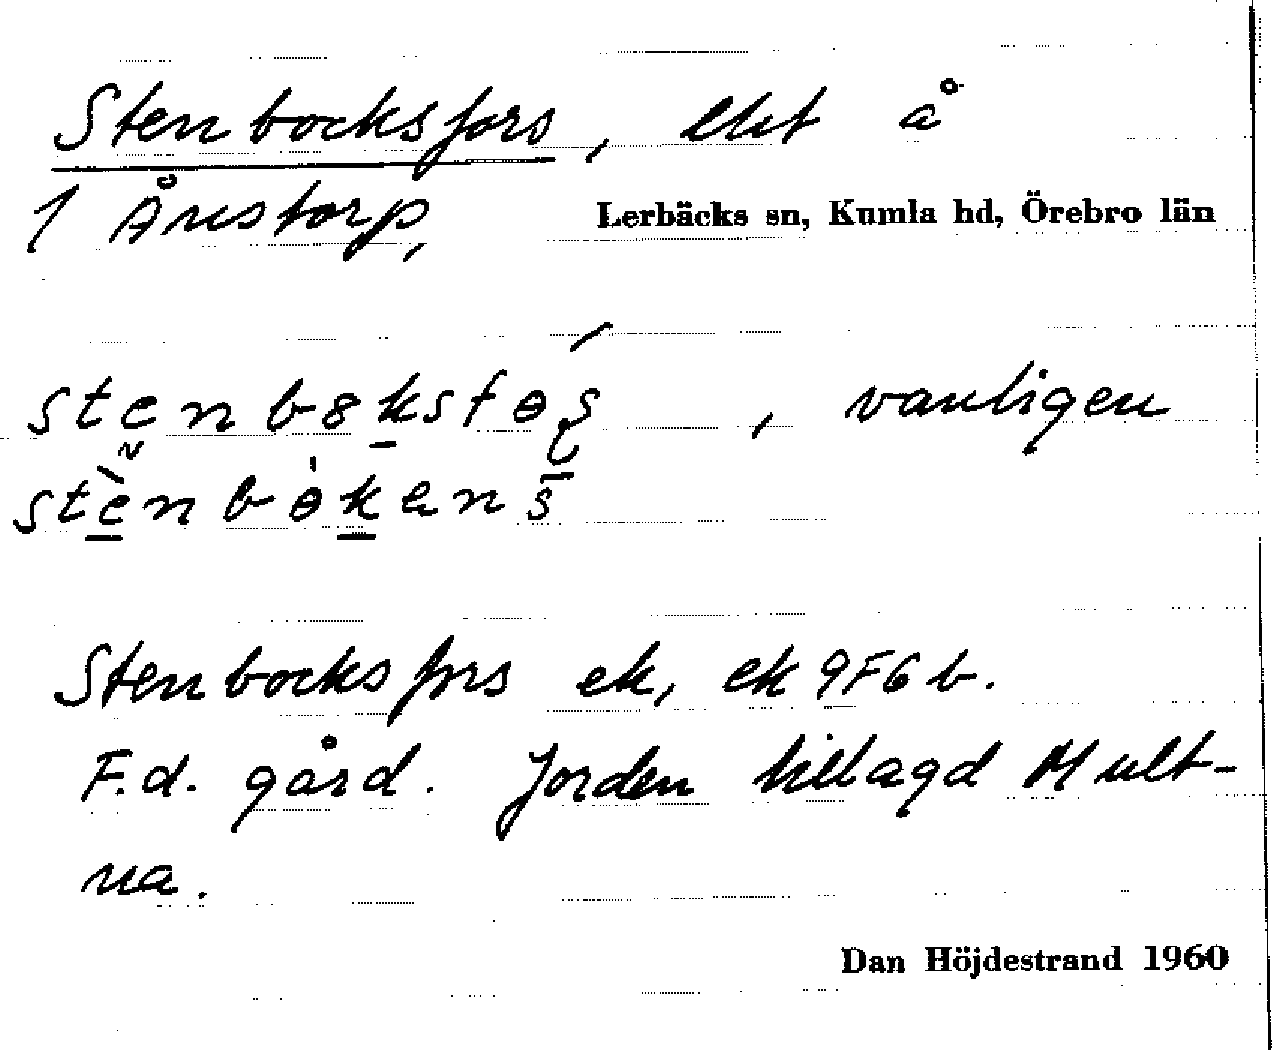 Stenbocksfors, lht å
1 Ånstorp,
Lerbäcks sn, Kumla hd, Örebro län
vanligen
Stenbocksfors ek, ek 9F6b.
F.d. gård. Jorden tillagd Mult-
na.
Dan Höjdestrand 1960